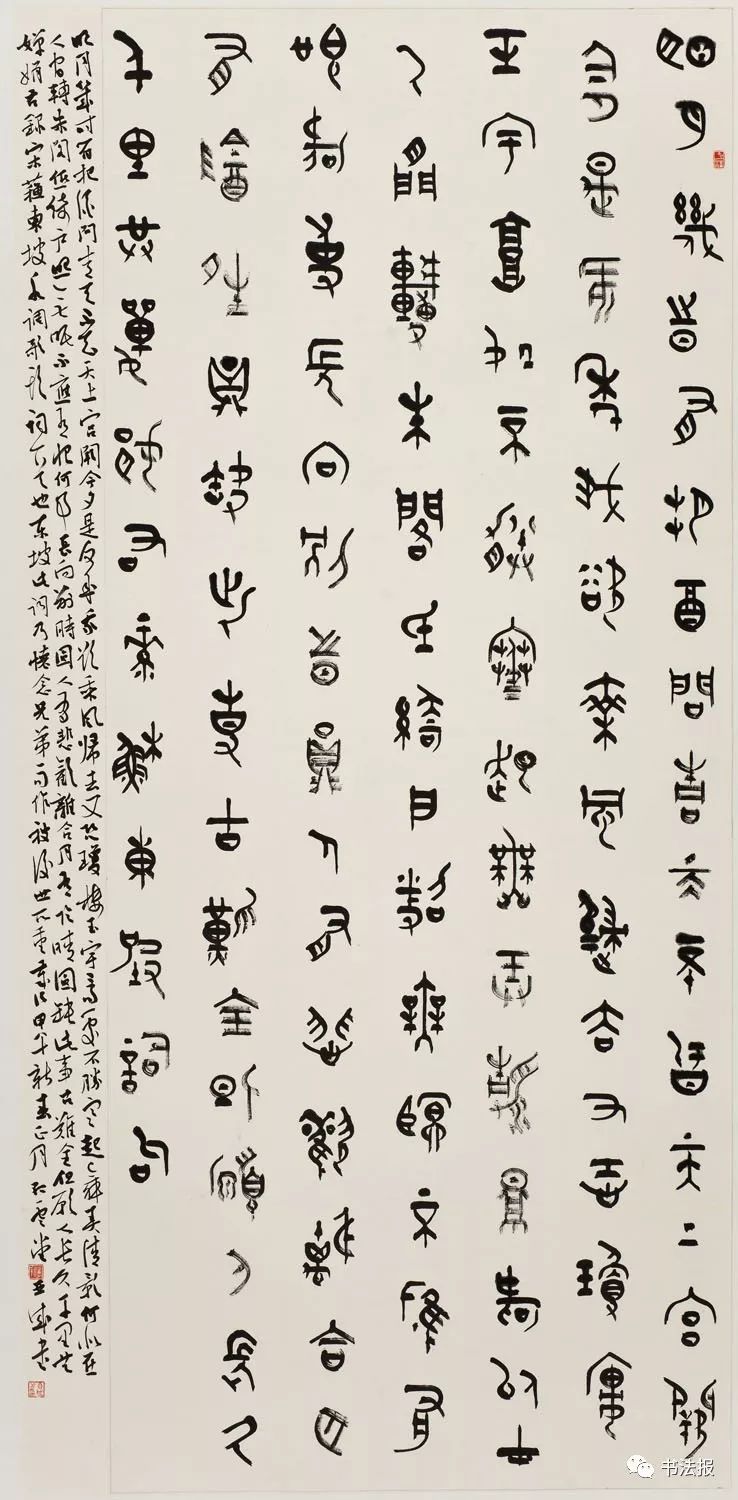 明月幾時有把酒問青天不知天上宮闕
今夕是何年我欲乘風歸去又恐瓊樓
玉宇高處不勝寒起舞弄清影何似在
人間轉朱閣低綺戶照無眠不應有
恨何事長向別時圓人有悲歡離合月
有陰晴圓缺此事古難全但願人長久
千里共嬋娟右录蘇東坡詞句
明月幾時有把酒問青天不知天上宮闕今夕是何年我欲乘風歸去又恐瓊樓玉宇高處不勝寒起舞弄清影何似在
人間轉朱閣低綺戶照無眠不應有恨何事長向別時圓人有悲歡離合月有陰晴圓缺此事古難全但願人長久千里共
嬋娟右錄宋蘇東坡水調歌頭詞也東坡此詞乃懷念兄弟而作被後世所重歲次甲午新春正月於書
书法报